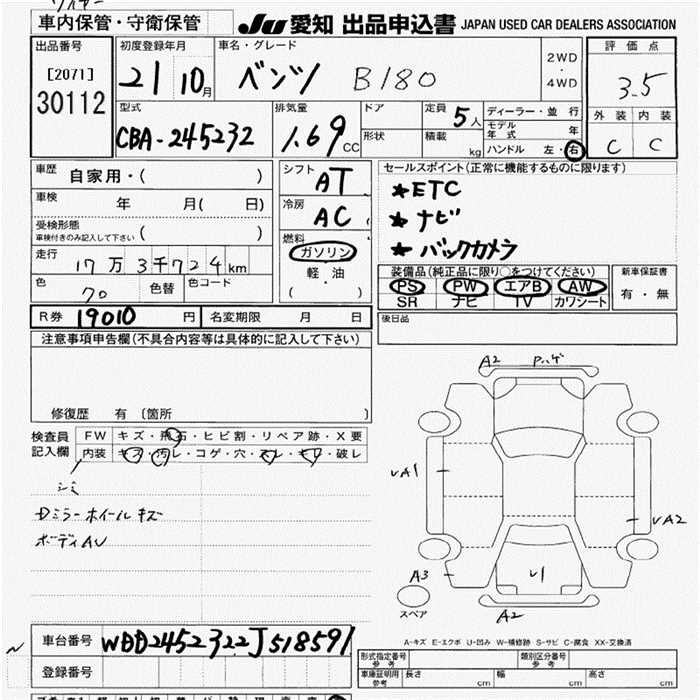 車内保管・守衛保管
JU 愛知 出品申込書 JAPAN USED CAR DEALERS ASSOCIATION
出品番号
[2071]
30112
初度登録年月
21 10月
車名・グレード
ベンツ B180
2WD
・
4WD
評価点
3.5
外装 内装
C C
型式
CBA-245232
排気量
1.69 CC
ドア
形状
定員 5人
積載 kg
ディーラー・並行
モデル年式 年
ハンドル 左・右
車歴
自家用・( )
車検
年 月( 日)
受検形態
車検付きのみ記入して下さい ( )
走行
17万3千724km
色
70
色替
色コード
シフト
AT
冷房
AC
燃料
ガソリン
軽油
( )
セールスポイント(正常に機能するものに限ります)
★ETC
★ナビ
★バックカメラ
装備品(純正品に限り○をつけてください)
PS PW エアB AW
SR ナビ TV カワシート
新車保証書
有・無
後日品
R券 19010 円
名変期限 月 日
注意事項申告欄(不具合内容等は具体的に記入して下さい)
修復歴 有 〔箇所 〕
検査員
記入欄
FW キズ・飛石・ヒビ割・リペア跡・X要
内装 キズ・汚レ・コゲ・穴・スレ・キレ・破レ
シミ
Dミラーホイールキズ
ボディAU
A2
UA1
UA2
A3
U1
A2
スペア
A-キズ E-エクボ U-凹み W-補修跡 S-サビ C-腐食 XX-交換済
車台番号 WDD2452322J518591
登録番号
型式指定番号
参考
類別区分番号
参考
車庫証明用
参考
長さ cm
幅 cm
高さ cm